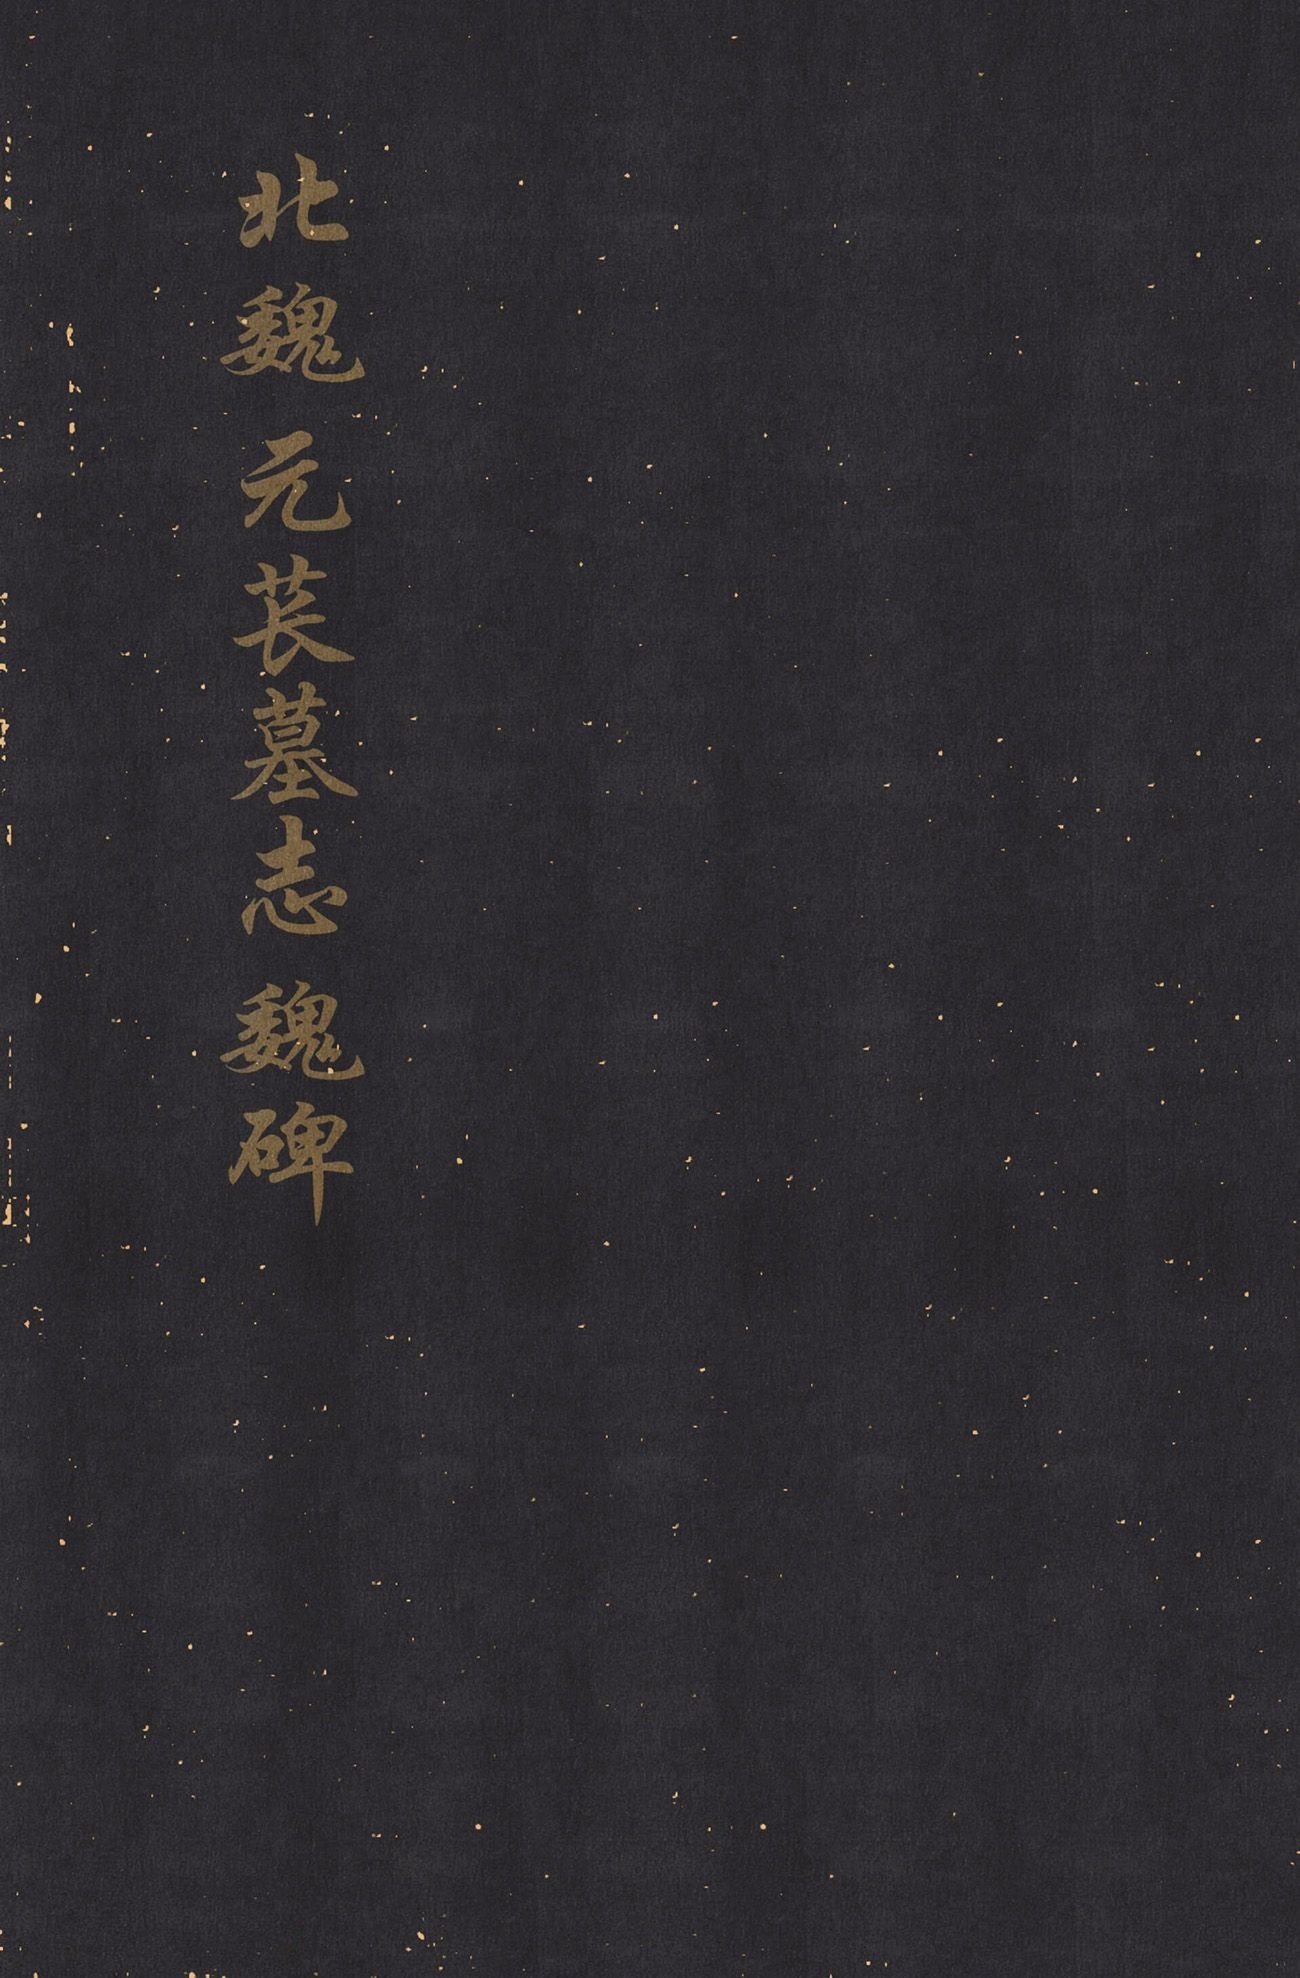 北魏 元苌墓志 魏碑